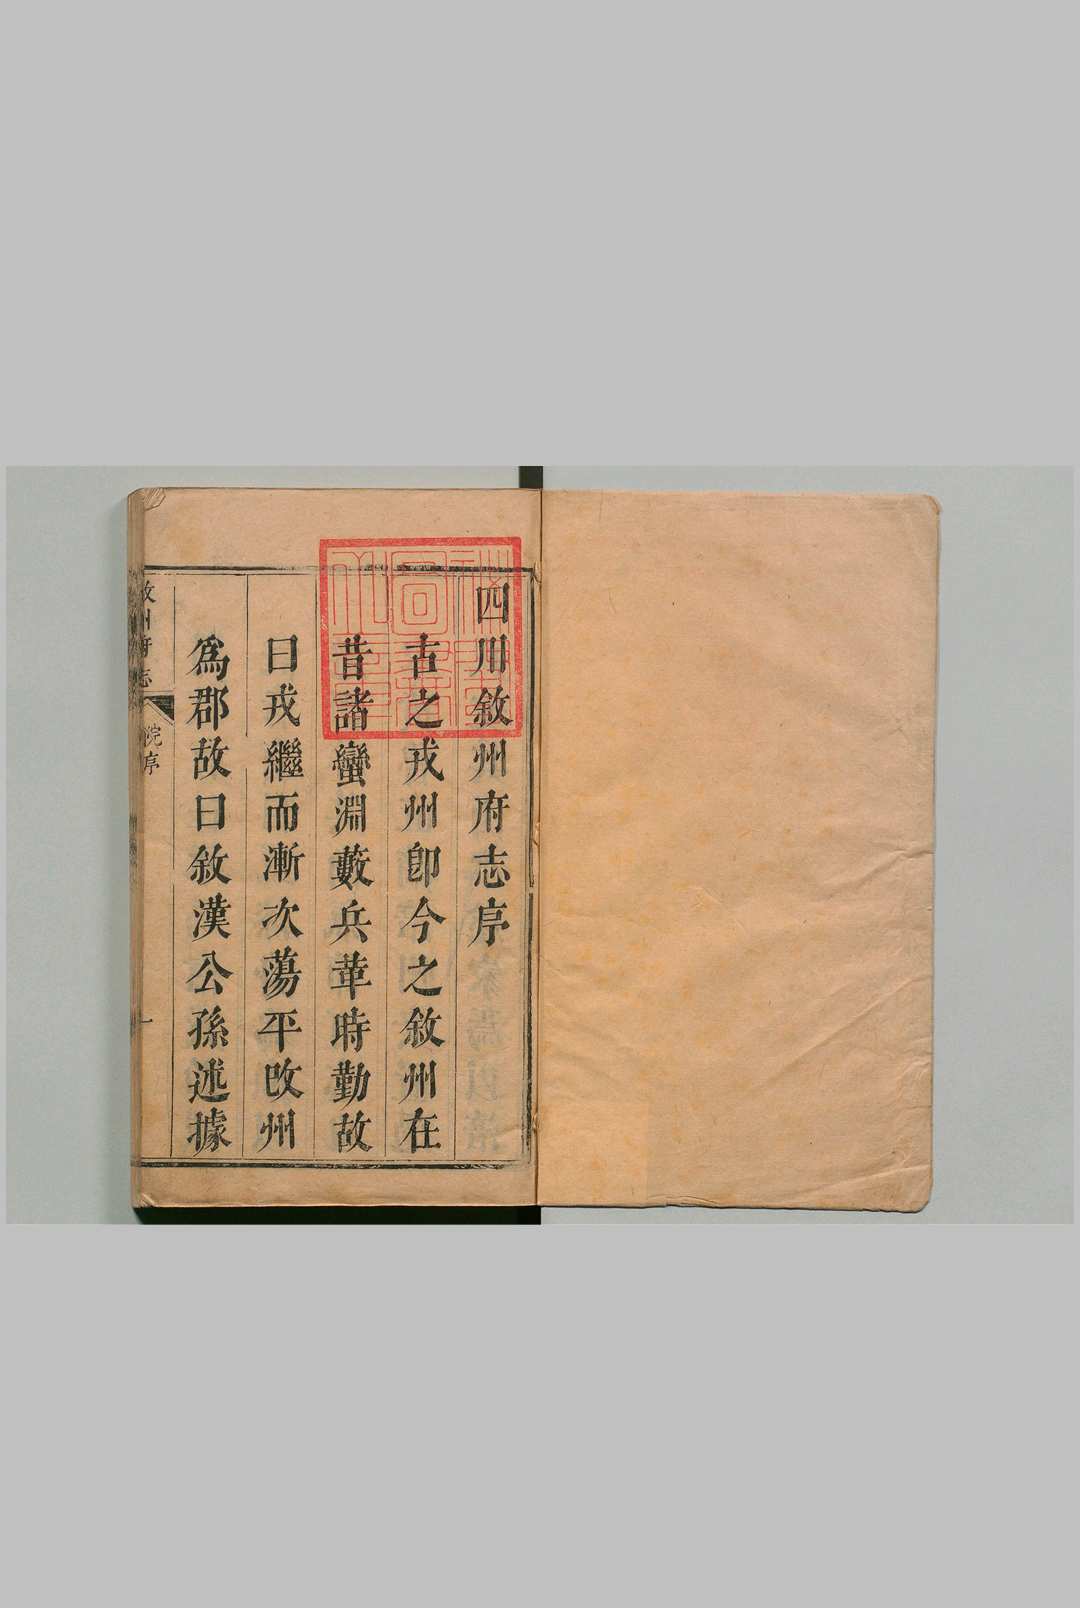 四川敘州府志序
古之戎州卽今之敘州在
昔諸蠻淵藪兵革時勤故
曰戎繼而漸次蕩平改州
爲郡故曰敘漢公孫述據
敘州府志
院序
一